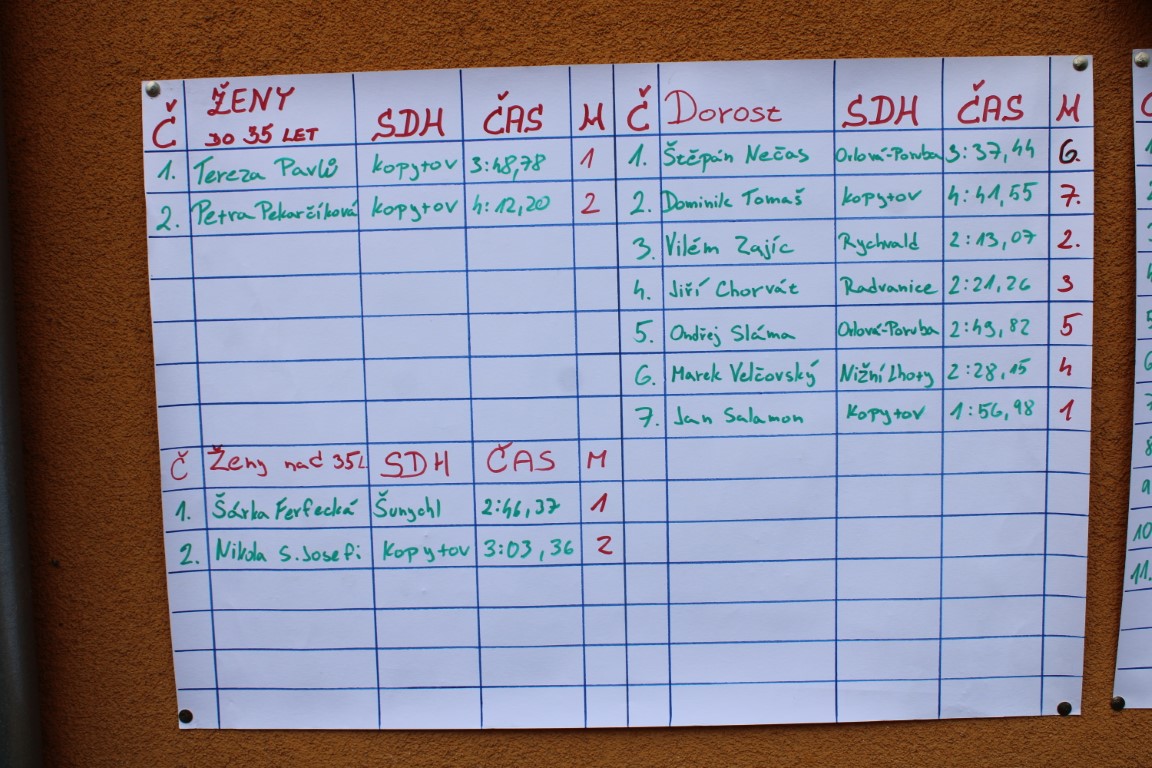 Č ŽENY DO 35 LET SDH ČAS M
1. Tereza Pavlů Kopytov 3:48,78 1
2. Petra Pekarčíková Kopytov 4:12,20 2
Č Ženy nad 35L SDH ČAS M
1. Šárka Ferfecká Šunychl 2:46,37 1
2. Nikola S. Josefi Kopytov 3:03,36 2
Č Dorost SDH ČAS M
1. Štěpán Nečas Orlová-Poruba 3:37,44 6.
2. Dominik Tomaš Kopytov 4:41,55 7.
3. Vilém Zajíc Rychvald 2:13,07 2.
4. Jiří Chorvát Radvanice 2:21,26 3
5. Ondřej Sláma Orlová-Poruba 2:49,82 5
6. Marek Velčovský Nižní Lhoty 2:28,15 4
7. Jan Salamon Kopytov 1:56,98 1
8
9
10
11.